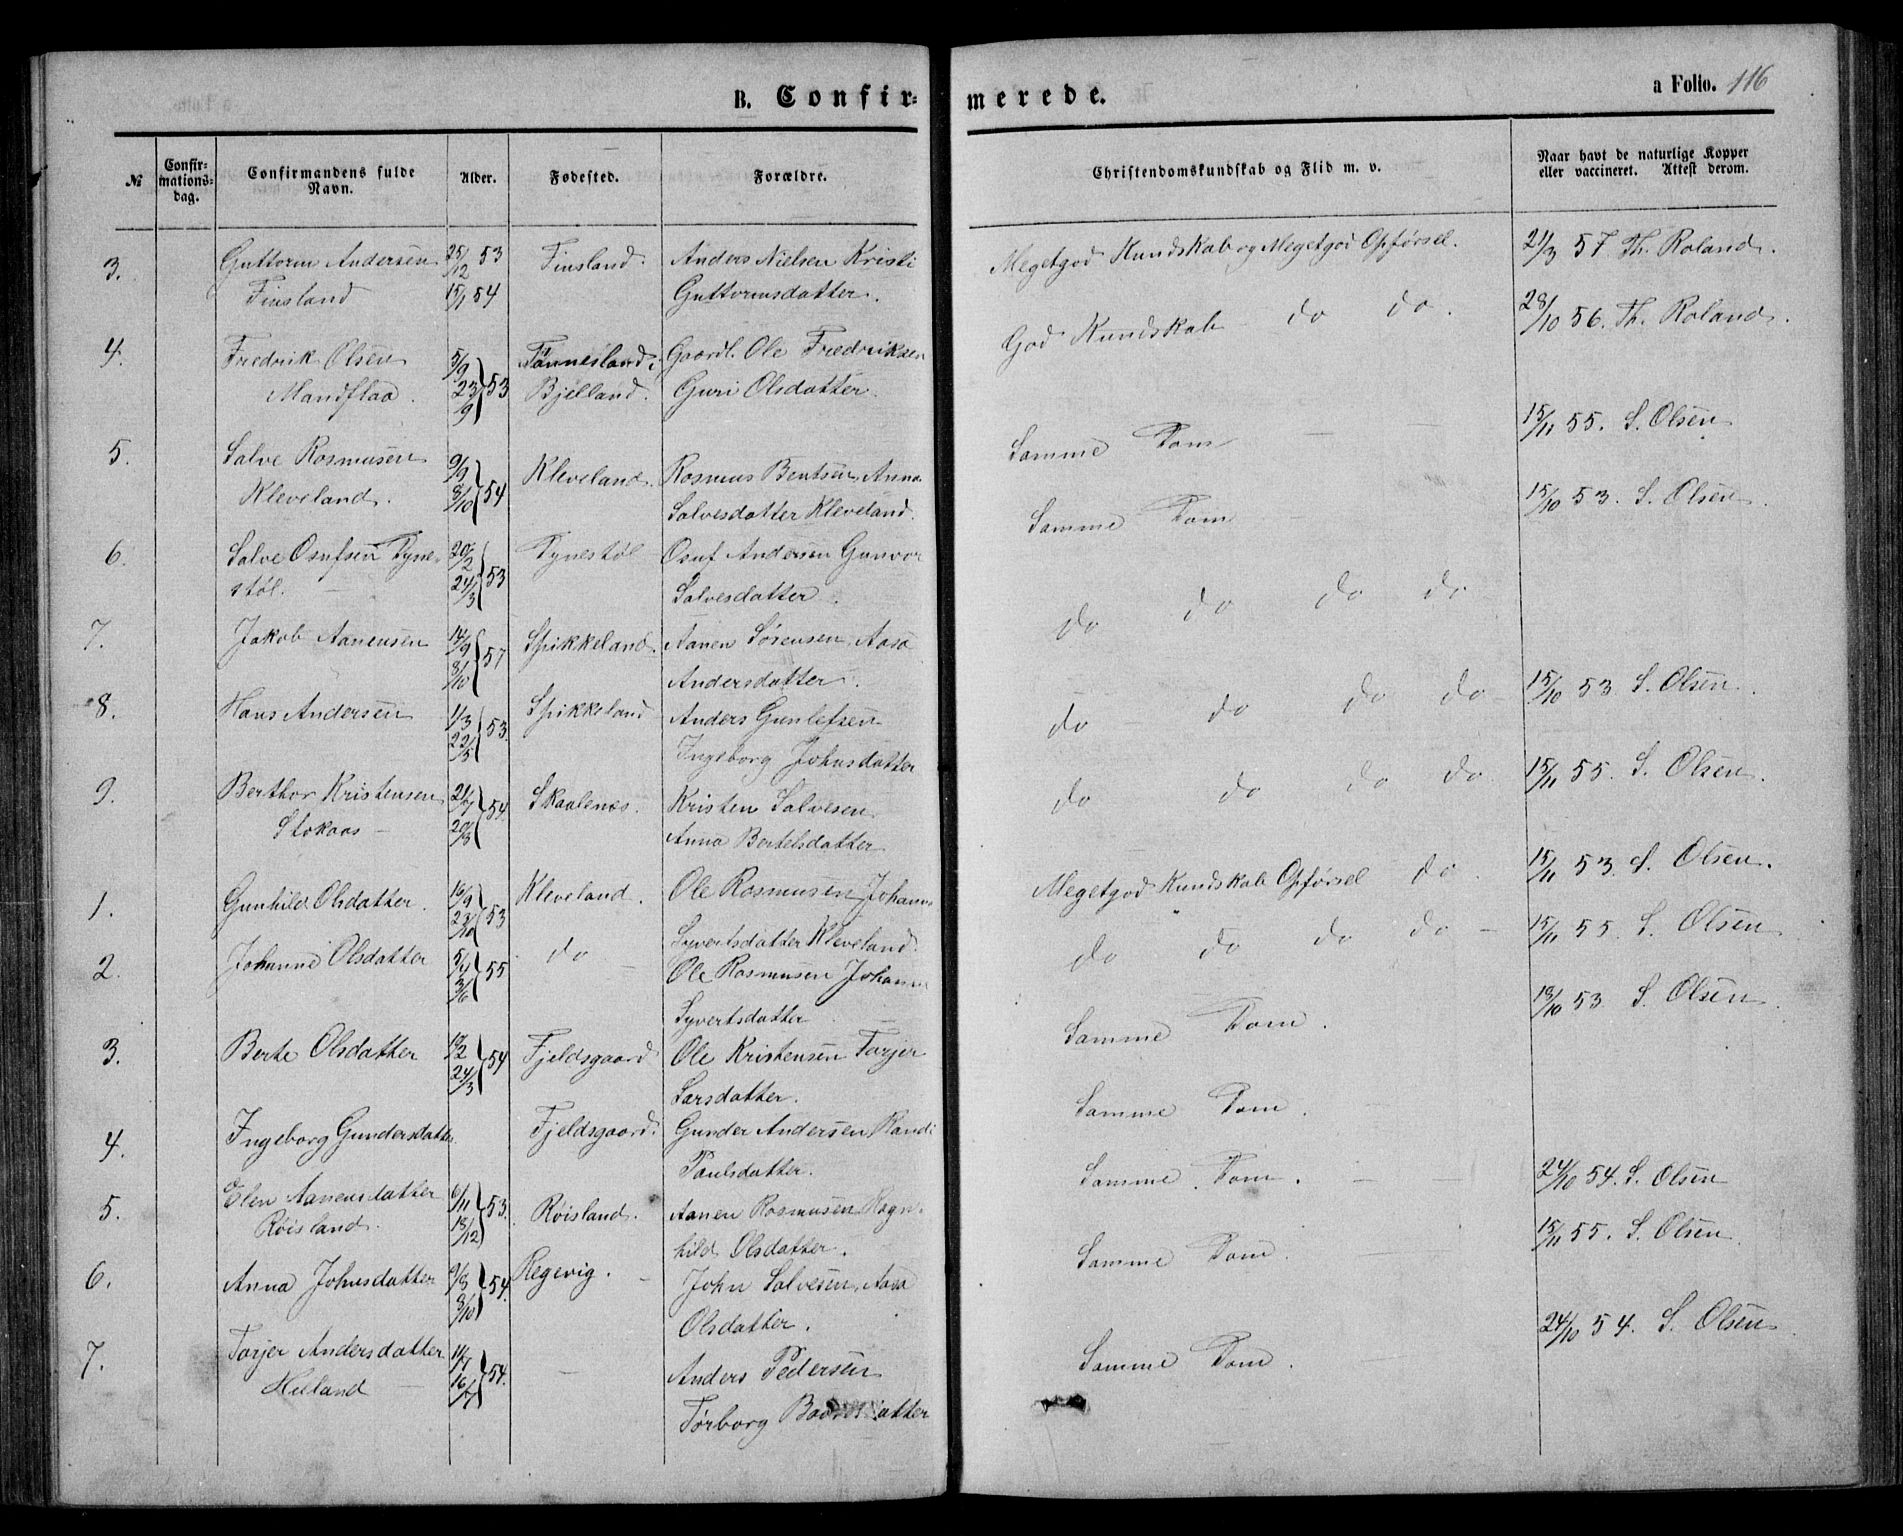 B. Confir-merede.
a Folio. 116
№
Confir-mations-dag.
Confirmandens fulde Navn.
Alder.
Fødested.
Forældre.
Christendomskundskab og Flid m. v.
Naar havt de naturlige Kopper eller vaccineret. Attest derom.
3. Guttorm Andersen 25/12 53 Finsland. Anders Nielsen Kristi Megetgod Kundskab og Megetgod Opførsel. 21/3 57 Th. Roland.
Finsland 15/1 54 Guttormsdatter.
4. Fredrik Olsen 5/9 Tønnesland i Gaardl. Ole Fredriksen God Kundskab do do. 28/10 56. Th. Roland.
Mandflaa. 23/9 53 Bjelland. Guri Olsdatter.
5. Salve Rosmusen 9/9 Kleveland. Rosmus Bentsen, Anna Samme Dom 15/11 55. S. Olsen
Kleveland. 8/10 54 Salvesdatter Kleveland.
6. Salve Osufsen Dyne- 20/2 Dynestøl Osuf Andersen Gunvor Samme Dom 15/10 53. S. Olsen.
støl. 24/3 53 Salvesdatter.
7. Jakob Aanensen 14/9 Spikkeland. Aanen Sørensen, Aasa do do do do
8/10 57 Andersdatter.
8. Hans Andersen 1/3 Spikkeland Anders Gunlefsen do do do do 15/10 53 S. Olsen.
22/5 53. Ingeborg Johnsdatter
9. Berthor Kristensen 21/7 Skaalenes. Kristen Salvesen do do do do. 15/11 55. S. Olsen.
Stokaas 20/3 54. Anna Bertelsdatter
1. Gunhild Olsdatter. 16/9 Kleveland. Ole Rosmusen Johanne Megetgod Kundskab Opførsel do. 15/11 53. S. Olsen.
23/10 53 Syvertsdatter Kleveland.
2. Johanne Olsdatter 5/4 do Ole Rosmusen Johanne do do do do 15/11 55. S. Olsen
3/6 55 Syvertsdatter
3. Berte Olsdatter Fjeldsgaard Ole Kristensen Torjer Samme Dom. 53 S. Olsen.
24/3 54 Larsdatter.
4. Ingeborg Gundersdatter Fjeldsgaard. Gunder Andersen, Randi Samme Dom.
Paulsdatter.
5. Elen Aanensdatter 6/11 Røisland. Aanen Rosmusen Ragn- Samme Dom. 24/10 54. S. Olsen
Røisland. 18/12 53. hild Olsdatter.
6. Anna Johnsdatter Regevig. John Salvesen, Aasa Samme Dom. 15/11 55. S. Olsen
8/10 54. Olsdatter.
7. Torjer Andersdatter Anders Pedersen Samme Dom. 24/10 54. S. Olsen
Helland 16/7 54. Tørborg